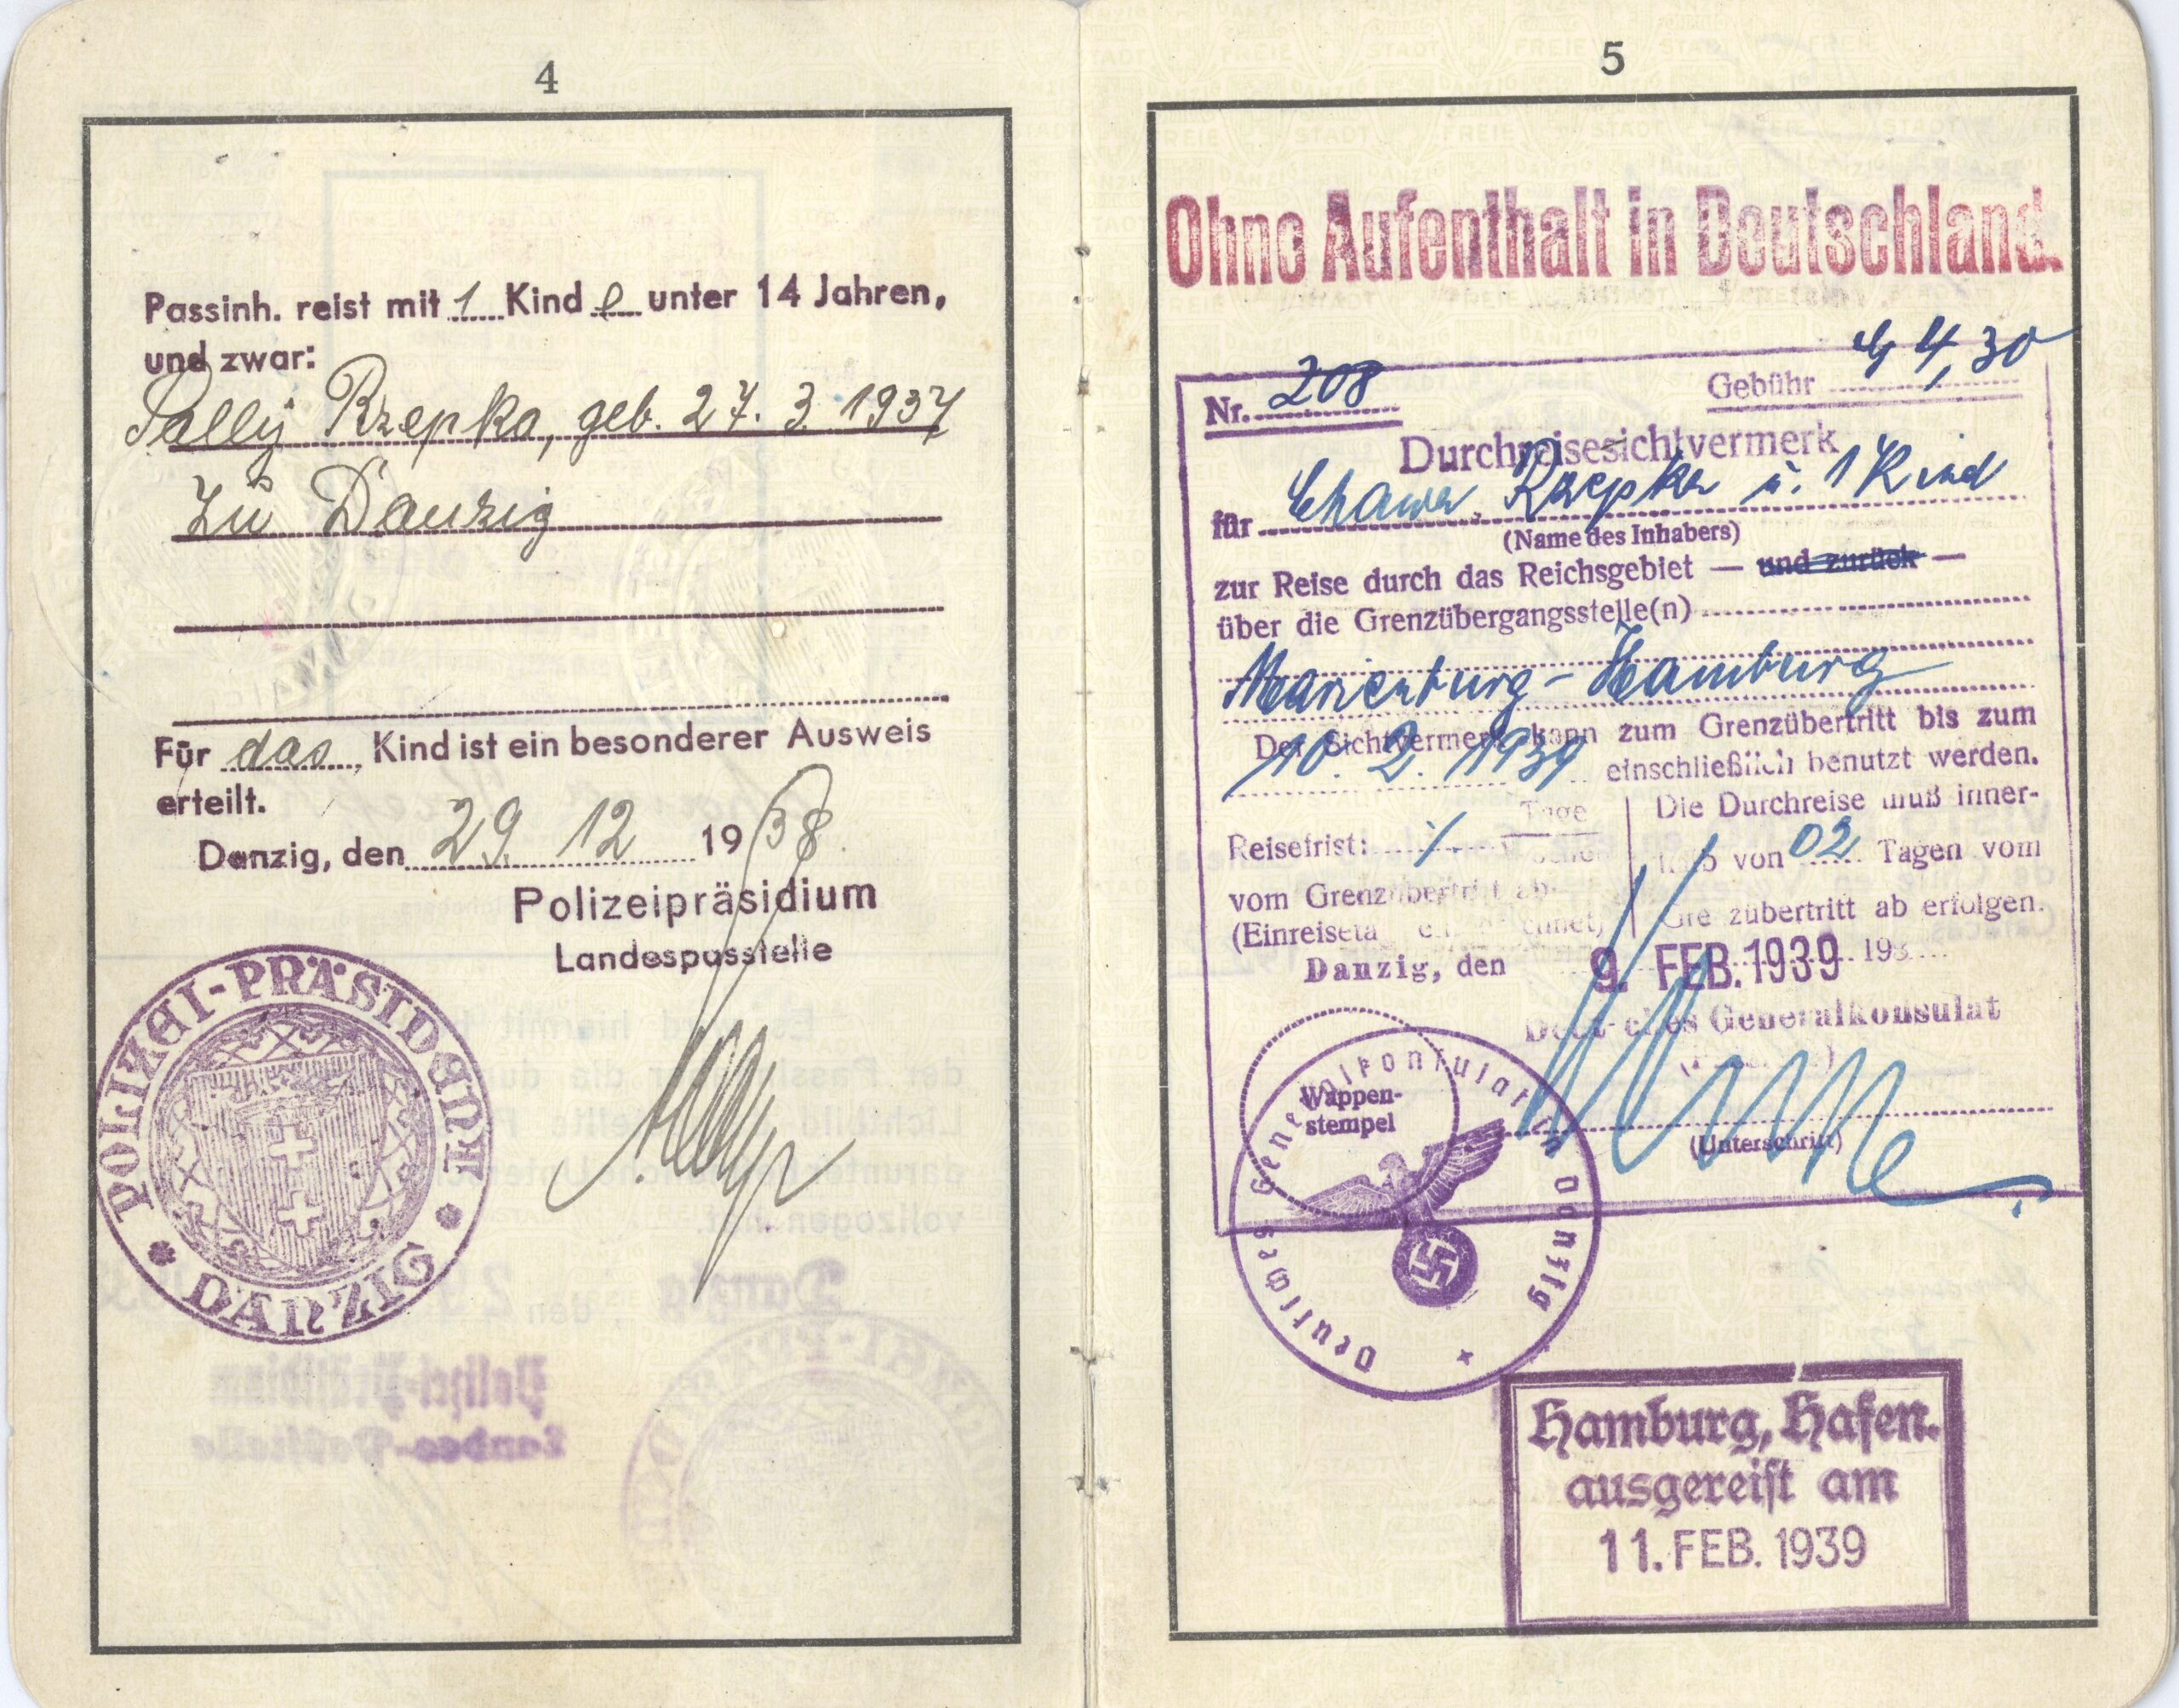 4
Passinh. reist mit 1 Kind e unter 14 Jahren,
und zwar:
Sally Rzepka, geb. 27. 3. 1937
zu Danzig
Für das Kind ist ein besonderer Ausweis
erteilt.
Danzig, den 29. 12 1938.
Polizeipräsidium
Landespassstelle
POLIZEI-PRÄSIDENT
DANZIG
5
Ohne Aufenthalt in Deutschland.
Nr. 208 Gebühr G 4,30
Durchreisesichtvermerk
für Chawa Rzepka u. 1 Kind
(Name des Inhabers)
zur Reise durch das Reichsgebiet — und zurück —
über die Grenzübergangsstelle(n)
Marienburg - Hamburg
Der Sichtvermerk kann zum Grenzübertritt bis zum
10. 2. 1939 einschließlich benutzt werden.
Tage Die Durchreise muß inner-
Reisefrist: halb von 02 Tagen vom
vom Grenzübertritt ab Grenzübertritt ab erfolgen.
Danzig, den 9. FEB. 1939 193
Deutsches Generalkonsulat
Wappen-
stempel
(Unterschrift)
Deutsches Generalkonsulat in Danzig
Hamburg, Hafen.
ausgereist am
11. FEB. 1939